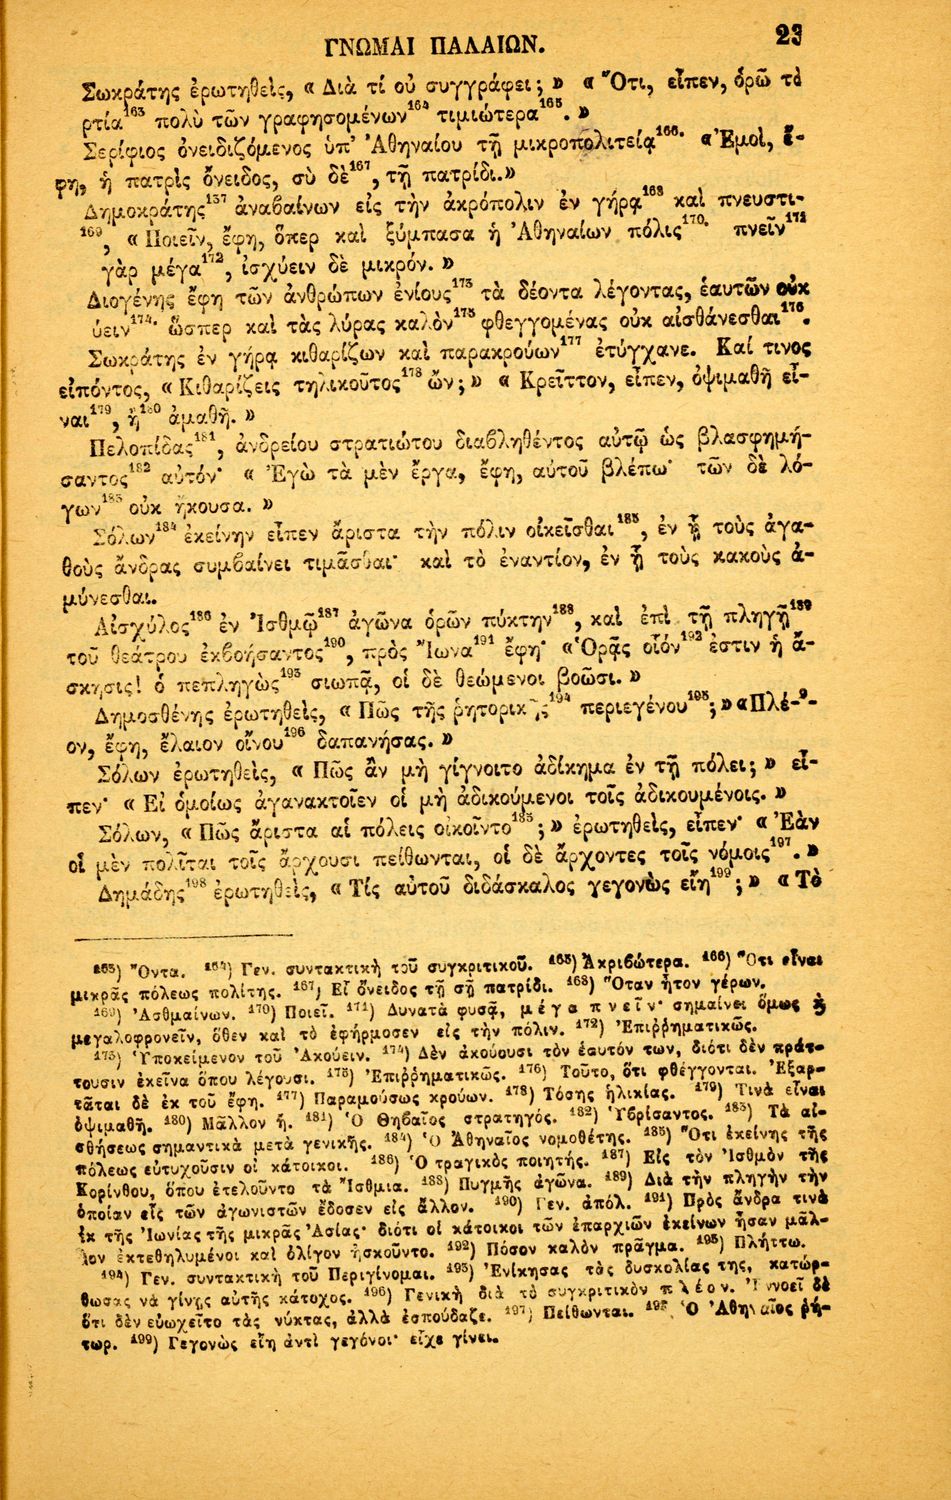 ΓΝΩΜΑΙ ΠΑΛΑΙΩΝ.
23
Σωκράτης ἐρωτηθεὶς, « Διὰ τί οὐ συγγράφει; » « Ὅτι, εἶπεν, ὁρῶ τὰ
ρτία¹⁶³ πολὺ τῶν γραφησομένων¹⁶⁴ τιμιώτερα¹⁶⁵. »
Σερίφιος ὀνειδιζόμενος ὑπ' Ἀθηναίου τῇ μικροπολιτείᾳ¹⁶⁶· «Ἐμοὶ, ἔ-
φη, ἡ πατρὶς ὄνειδος, σὺ δὲ¹⁶⁷, τῇ πατρίδι.»
Δημοκράτης¹³⁷ ἀναβαίνων εἰς τὴν ἀκρόπολιν ἐν γήρᾳ¹⁶⁸ καὶ πνευστι-
¹⁶⁹, « Ποιεῖν, ἔφη, ὅπερ καὶ ξύμπασα ἡ Ἀθηναίων πόλις¹⁷⁰· πνεῖν¹⁷¹
γὰρ μέγα¹⁷², ἰσχύειν δὲ μικρόν. »
Διογένης ἔφη τῶν ἀνθρώπων ἐνίους¹⁷³ τὰ δέοντα λέγοντας, ἑαυτῶν οὐκ
ύειν¹⁷⁴· ὥσπερ καὶ τὰς λύρας καλὸν¹⁷⁵ φθεγγομένας οὐκ αἰσθάνεσθαι¹⁷⁶.
Σωκράτης ἐν γήρᾳ κιθαρίζων καὶ παρακρούων¹⁷⁷ ἐτύγχανε. Καί τινος
εἰπόντος, « Κιθαρίζεις τηλικοῦτος¹⁷⁸ ὤν; » « Κρεῖττον, εἶπεν, ὀψιμαθῆ εἶ-
ναι¹⁷⁹, ἢ¹⁸⁰ ἀμαθῆ. »
Πελοπίδας¹⁸¹, ἀνδρείου στρατιώτου διαβληθέντος αὐτῷ ὡς βλασφημή-
σαντος¹⁸² αὐτόν· « Ἐγὼ τὰ μὲν ἔργα, ἔφη, αὐτοῦ βλέπω· τῶν δὲ λό-
γων¹⁸³ οὐκ ἤκουσα. »
Σόλων¹⁸⁴ ἐκείνην εἶπεν ἄριστα τὴν πόλιν οἰκεῖσθαι¹⁸⁵, ἐν ᾗ τοὺς ἀγα-
θοὺς ἄνδρας συμβαίνει τιμᾶσθαι· καὶ τὸ ἐναντίον, ἐν ᾗ τοὺς κακοὺς ἀ-
μύνεσθαι.
Αἰσχύλος¹⁸⁶ ἐν Ἰσθμῷ¹⁸⁷ ἀγῶνα ὁρῶν πύκτην¹⁸⁸, καὶ ἐπὶ τῇ πληγῇ¹⁸⁹
τοῦ θεάτρου ἐκβοήσαντος¹⁹⁰, πρὸς Ἴωνα¹⁹¹ ἔφη· «Ὁρᾷς οἷόν¹⁹² ἐστιν ἡ ἄ-
σκησις! ὁ πεπληγὼς¹⁹³ σιωπᾷ, οἱ δὲ θεώμενοι βοῶσι. »
Δημοσθένης ἐρωτηθεὶς, « Πῶς τῆς ῥητορικῆς¹⁹⁴ περιεγένου¹⁹⁵; » «Πλέ-
ον, ἔφη, ἔλαιον οἴνου¹⁹⁶ δαπανήσας. »
Σόλων ἐρωτηθεὶς, « Πῶς ἂν μὴ γίγνοιτο ἀδίκημα ἐν τῇ πόλει; » εἶ-
πεν· « Εἰ ὁμοίως ἀγανακτοῖεν οἱ μὴ ἀδικούμενοι τοῖς ἀδικουμένοις. »
Σόλων, « Πῶς ἄριστα αἱ πόλεις οἰκοῖντο¹⁸⁵; » ἐρωτηθεὶς, εἶπεν· « Ἐὰν
οἱ μὲν πολῖται τοῖς ἄρχουσι πείθωνται, οἱ δὲ ἄρχοντες τοῖς νόμοις¹⁹⁷. »
Δημάδης¹⁹⁸ ἐρωτηθεὶς, « Τίς αὐτοῦ διδάσκαλος γεγονὼς εἴη¹⁹⁹; » « Τὸ
¹⁶³) Ὄντα. ¹⁶⁴) Γεν. συντακτικὴ τοῦ συγκριτικοῦ. ¹⁶⁵) Ἀκριβώτερα. ¹⁶⁶) Ὅτι εἶναι
μικρᾶς πόλεως πολίτης. ¹⁶⁷) Εἶ ὄνειδος τῇ σῇ πατρίδι. ¹⁶⁸) Ὅταν ἦτον γέρων.
¹⁶⁹) Ἀσθμαίνων. ¹⁷⁰) Ποιεῖ. ¹⁷¹) Δυνατὰ φυσᾷ, μέγα πνεῖν· σημαίνει ὅμως ἢ
μεγαλοφρονεῖν, ὅθεν καὶ τὸ ἐφήρμοσεν εἰς τὴν πόλιν. ¹⁷²) Ἐπιῤῥηματικῶς.
¹⁷³) Ὑποκείμενον τοῦ Ἀκούειν. ¹⁷⁴) Δὲν ἀκούουσι τὸν ἑαυτόν των, διότι δὲν πράτ-
τουσιν ἐκεῖνα ὅπου λέγουσι. ¹⁷⁵) Ἐπιῤῥηματικῶς. ¹⁷⁶) Τοῦτο, ὅτι φθέγγονται. Ἐξαρ-
τᾶται δὲ ἐκ τοῦ ἔφη. ¹⁷⁷) Παραμούσως κρούων. ¹⁷⁸) Τόσης ἡλικίας. ¹⁷⁹) Τινὰ εἶναι
ὀψιμαθῆ. ¹⁸⁰) Μᾶλλον ἤ. ¹⁸¹) Ὁ Θηβαῖος στρατηγός. ¹⁸²) Ὑβρίσαντος. ¹⁸³) Τὰ αἰ-
σθήσεως σημαντικὰ μετὰ γενικῆς. ¹⁸⁴) Ὁ Ἀθηναῖος νομοθέτης. ¹⁸⁵) Ὅτι ἐκείνης τῆς
πόλεως εὐτυχοῦσιν οἱ κάτοικοι. ¹⁸⁶) Ὁ τραγικὸς ποιητής. ¹⁸⁷) Εἰς τὸν Ἰσθμὸν τῆς
Κορίνθου, ὅπου ἐτελοῦντο τὰ Ἴσθμια. ¹⁸⁸) Πυγμῆς ἀγῶνα. ¹⁸⁹) Διὰ τὴν πληγὴν τὴν
ὁποίαν εἷς τῶν ἀγωνιστῶν ἔδοσεν εἰς ἄλλον. ¹⁹⁰) Γεν. ἀπόλ. ¹⁹¹) Πρὸς ἄνδρα τινὰ
ἐκ τῆς Ἰωνίας τῆς μικρᾶς Ἀσίας· διότι οἱ κάτοικοι τῶν ἐπαρχιῶν ἐκείνων ἦσαν μᾶλ-
λον ἐκτεθηλυμένοι καὶ ὀλίγον ἠσκοῦντο. ¹⁹²) Πόσον καλὸν πρᾶγμα. ¹⁹³) Πλήττω.
¹⁹⁴) Γεν. συντακτικὴ τοῦ Περιγίνομαι. ¹⁹⁵) Ἐνίκησας τὰς δυσκολίας της, κατώρ-
θωσας νὰ γίνῃς αὐτῆς κάτοχος. ¹⁹⁶) Γενικὴ διὰ τὸ συγκριτικὸν πλέον. Ἐννοεῖ δὲ
ὅτι δὲν εὐωχεῖτο τὰς νύκτας, ἀλλὰ ἐσπούδαζε. ¹⁹⁷) Πείθωνται. ¹⁹⁸ Ὁ Ἀθηναῖος ῥή-
τωρ. ¹⁹⁹) Γεγονὼς εἴη ἀντὶ γεγόνοι· εἶχε γίνει.